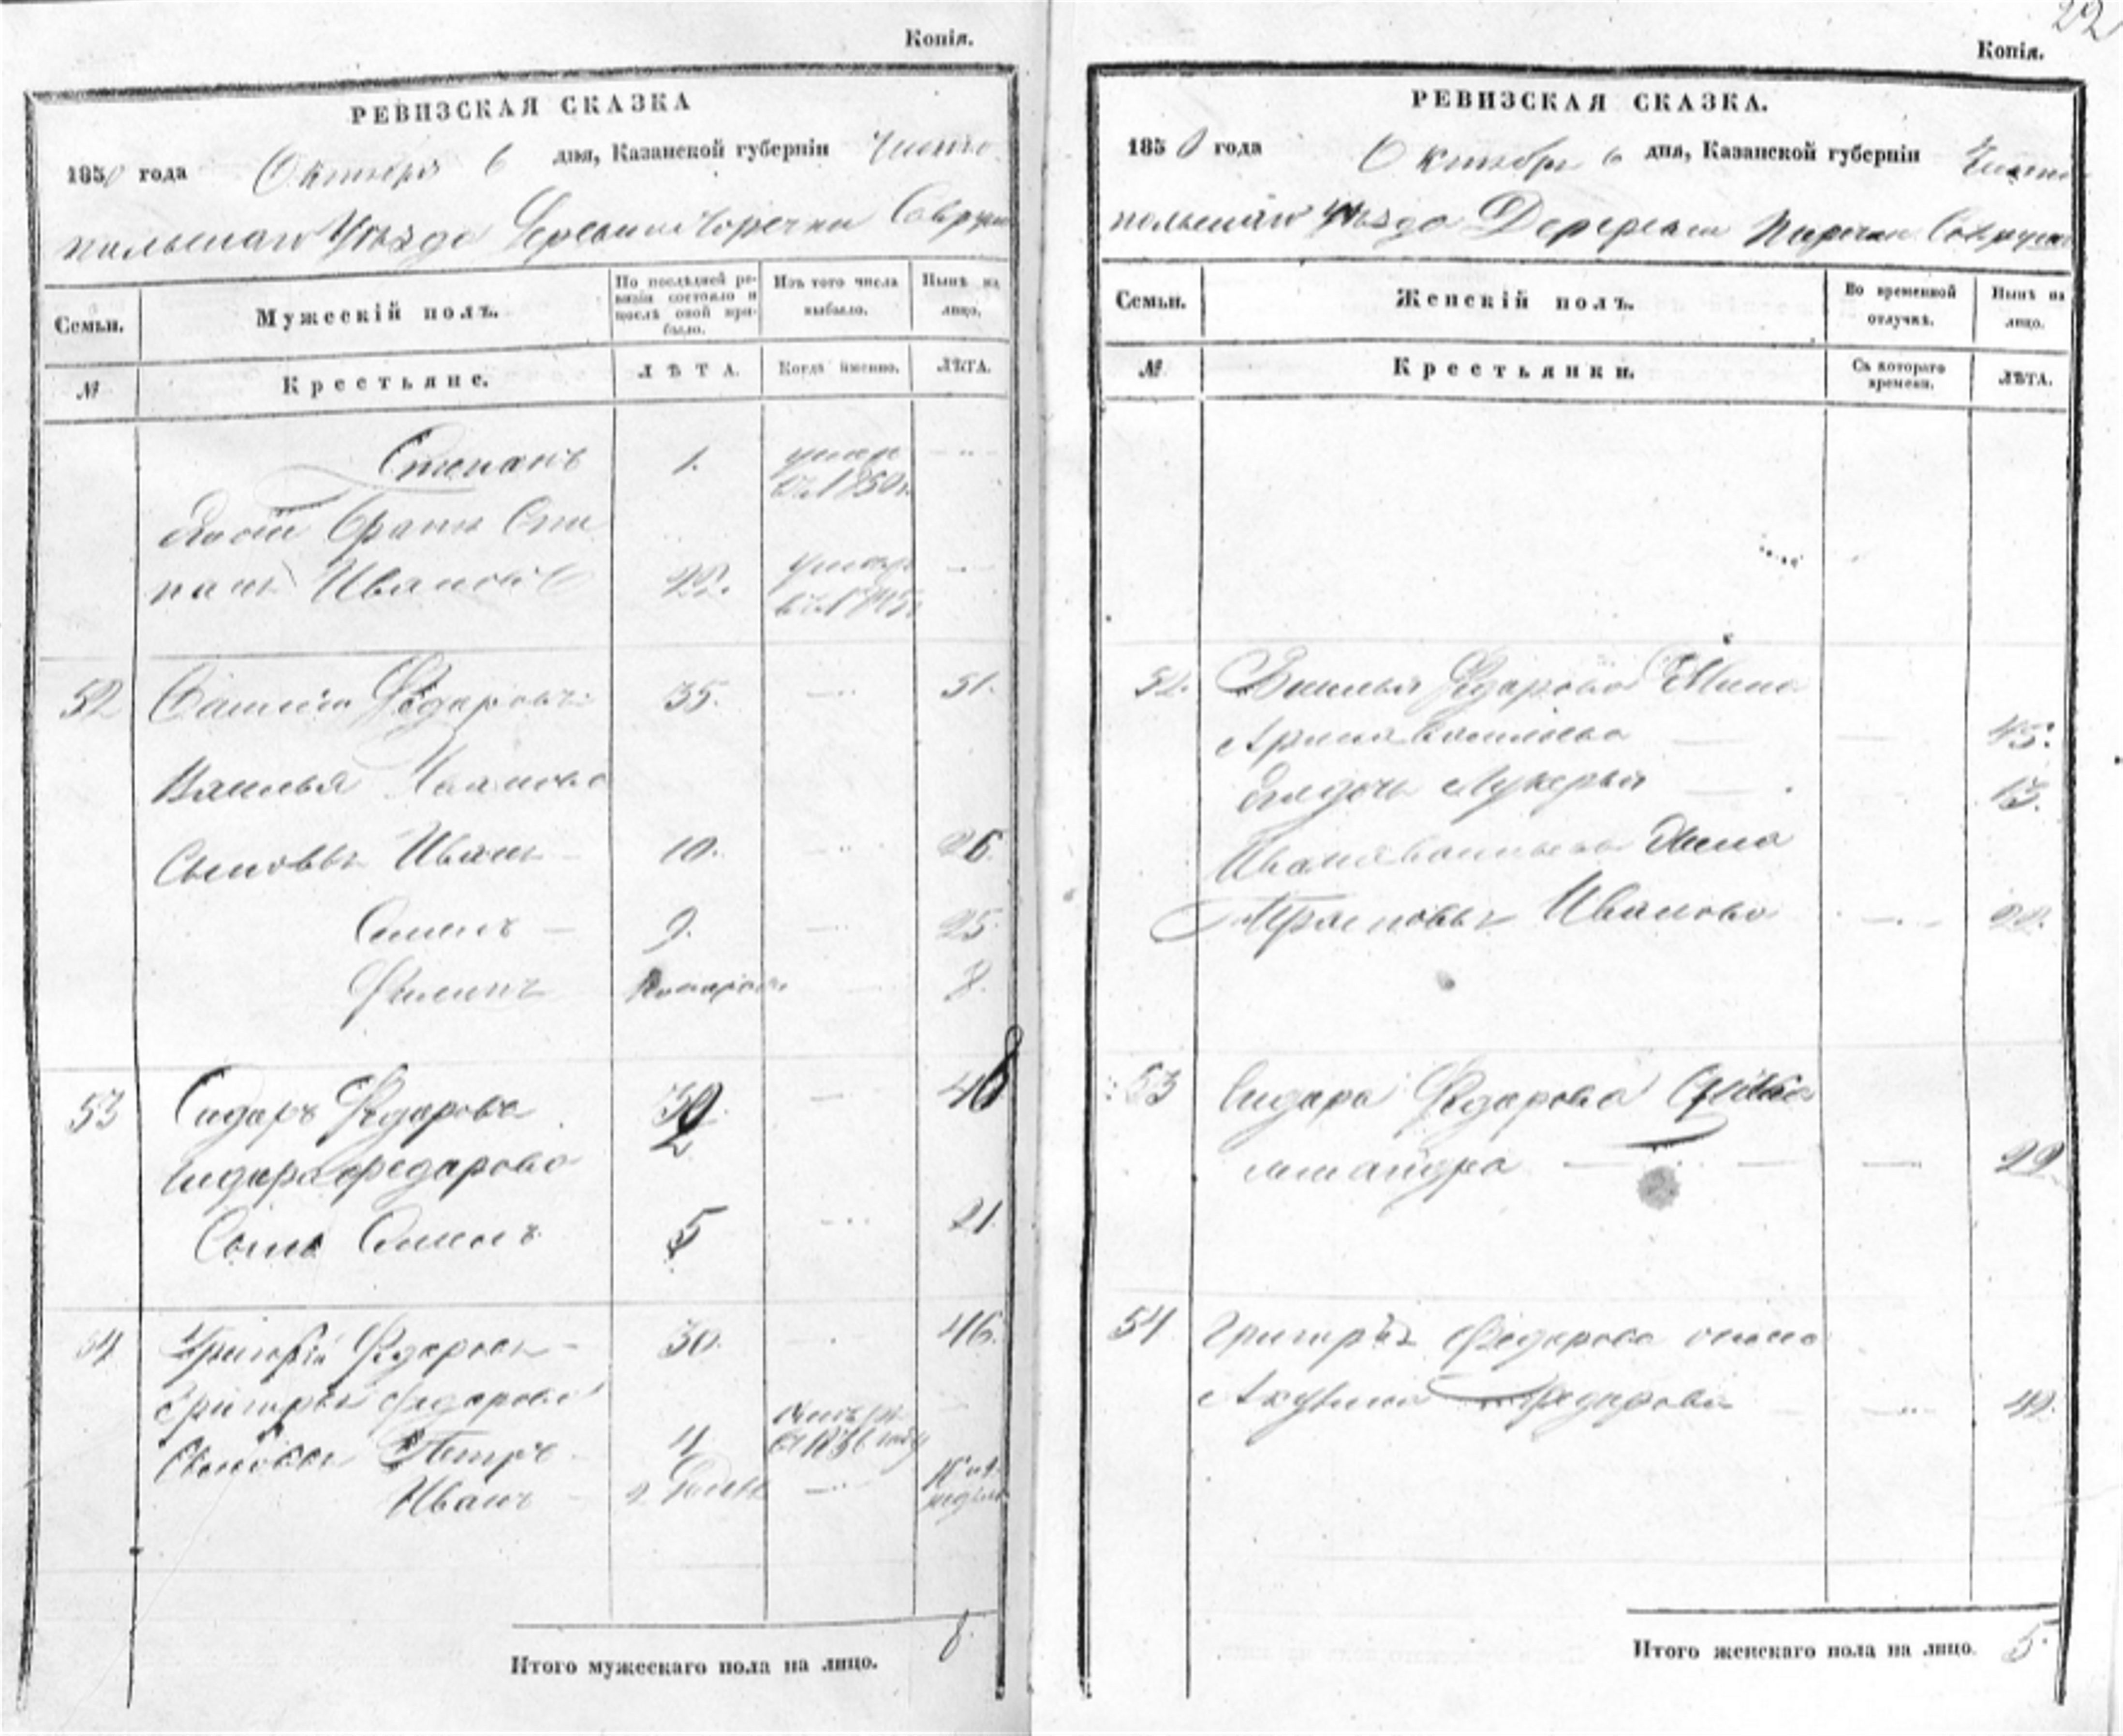 Копія.
РЕВИЗСКАЯ СКАЗКА
1850 года Октября 6 дня, Казанской губерніи Чисто
польскаго Уѣзда Деревни Поречки Савруши
Семьи.
Мужескій полъ.
По послѣдней ревизіи состояло и послѣ оной прибыло.
Изъ того числа выбыло.
Нынѣ на лицо.
№
Крестьяне.
ЛѢТА.
Когда именно.
ЛѢТА.
Степанъ 1. умеръ въ 1850 г.
братъ Сте
панъ Ивановъ 22. умеръ
52 Василій Федаровъ 35. 51.
Василья Иванова
Сыновья Иванъ 10. 26.
Семенъ 9. 25.
Филипъ 8.
53 Сидаръ Федарова 46
Сидара Федарова
Сынъ Семенъ 5 21.
54 Григорій Федаровъ 30. 46.
Григорья Федарова
Сыновья Петръ 4
Иванъ
Итого мужескаго пола на лицо. 8.
22
Копія.
РЕВИЗСКАЯ СКАЗКА.
1850 года Октября 6 дня, Казанской губерніи Чисто
польскаго Уѣзда Деревни Поречки Савруши
Семьи.
Женскій полъ.
Во временной отлучкѣ.
Нынѣ на лицо.
№
Крестьянки.
Съ котораго времени.
ЛѢТА.
52. Василья Федарова Жена
Арина Васильева 45.
дочь Лукерья 13.
Ивана Васильева Жена
Ивановa
53 Сидара Федарова
54 Григорья Федарова жена
Акулина Федарова 42.
Итого женскаго пола на лицо. 5.